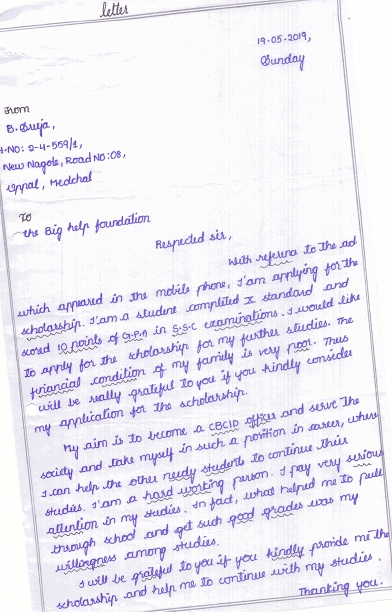 letter
19-05-2019,
Sunday
From
B. Sruja,
H.NO: 2-4-559/1,
New Nagole, Road NO:08,
Uppal, Medchal
To
the Big help foundation
Respected sir,
With referna to the ad
which appeared in the mobile phone, I'am applying for the
scholarship. I'am a student completed X standard and
scored 10 points of G.P.A in S.S.C examinations. I would like
to apply for the scholarship for my further studies. The
financial condition of my family is very poor. Thus
will be really grateful to you if you kindly consider
my application for the scholarship.
My aim is to become a CBCID officer and serve the
society and take myself in such a position in career, where
I can help the other needy students to continue their
studies. I'am a hard working person. I pay very serious
attention in my studies. In fact, what helped me to pull
through school and get such good grades was my
willingness among studies.
I will be grateful to you if you kindly provide me the
scholarship and help me to continue with my studies.
Thanking you.